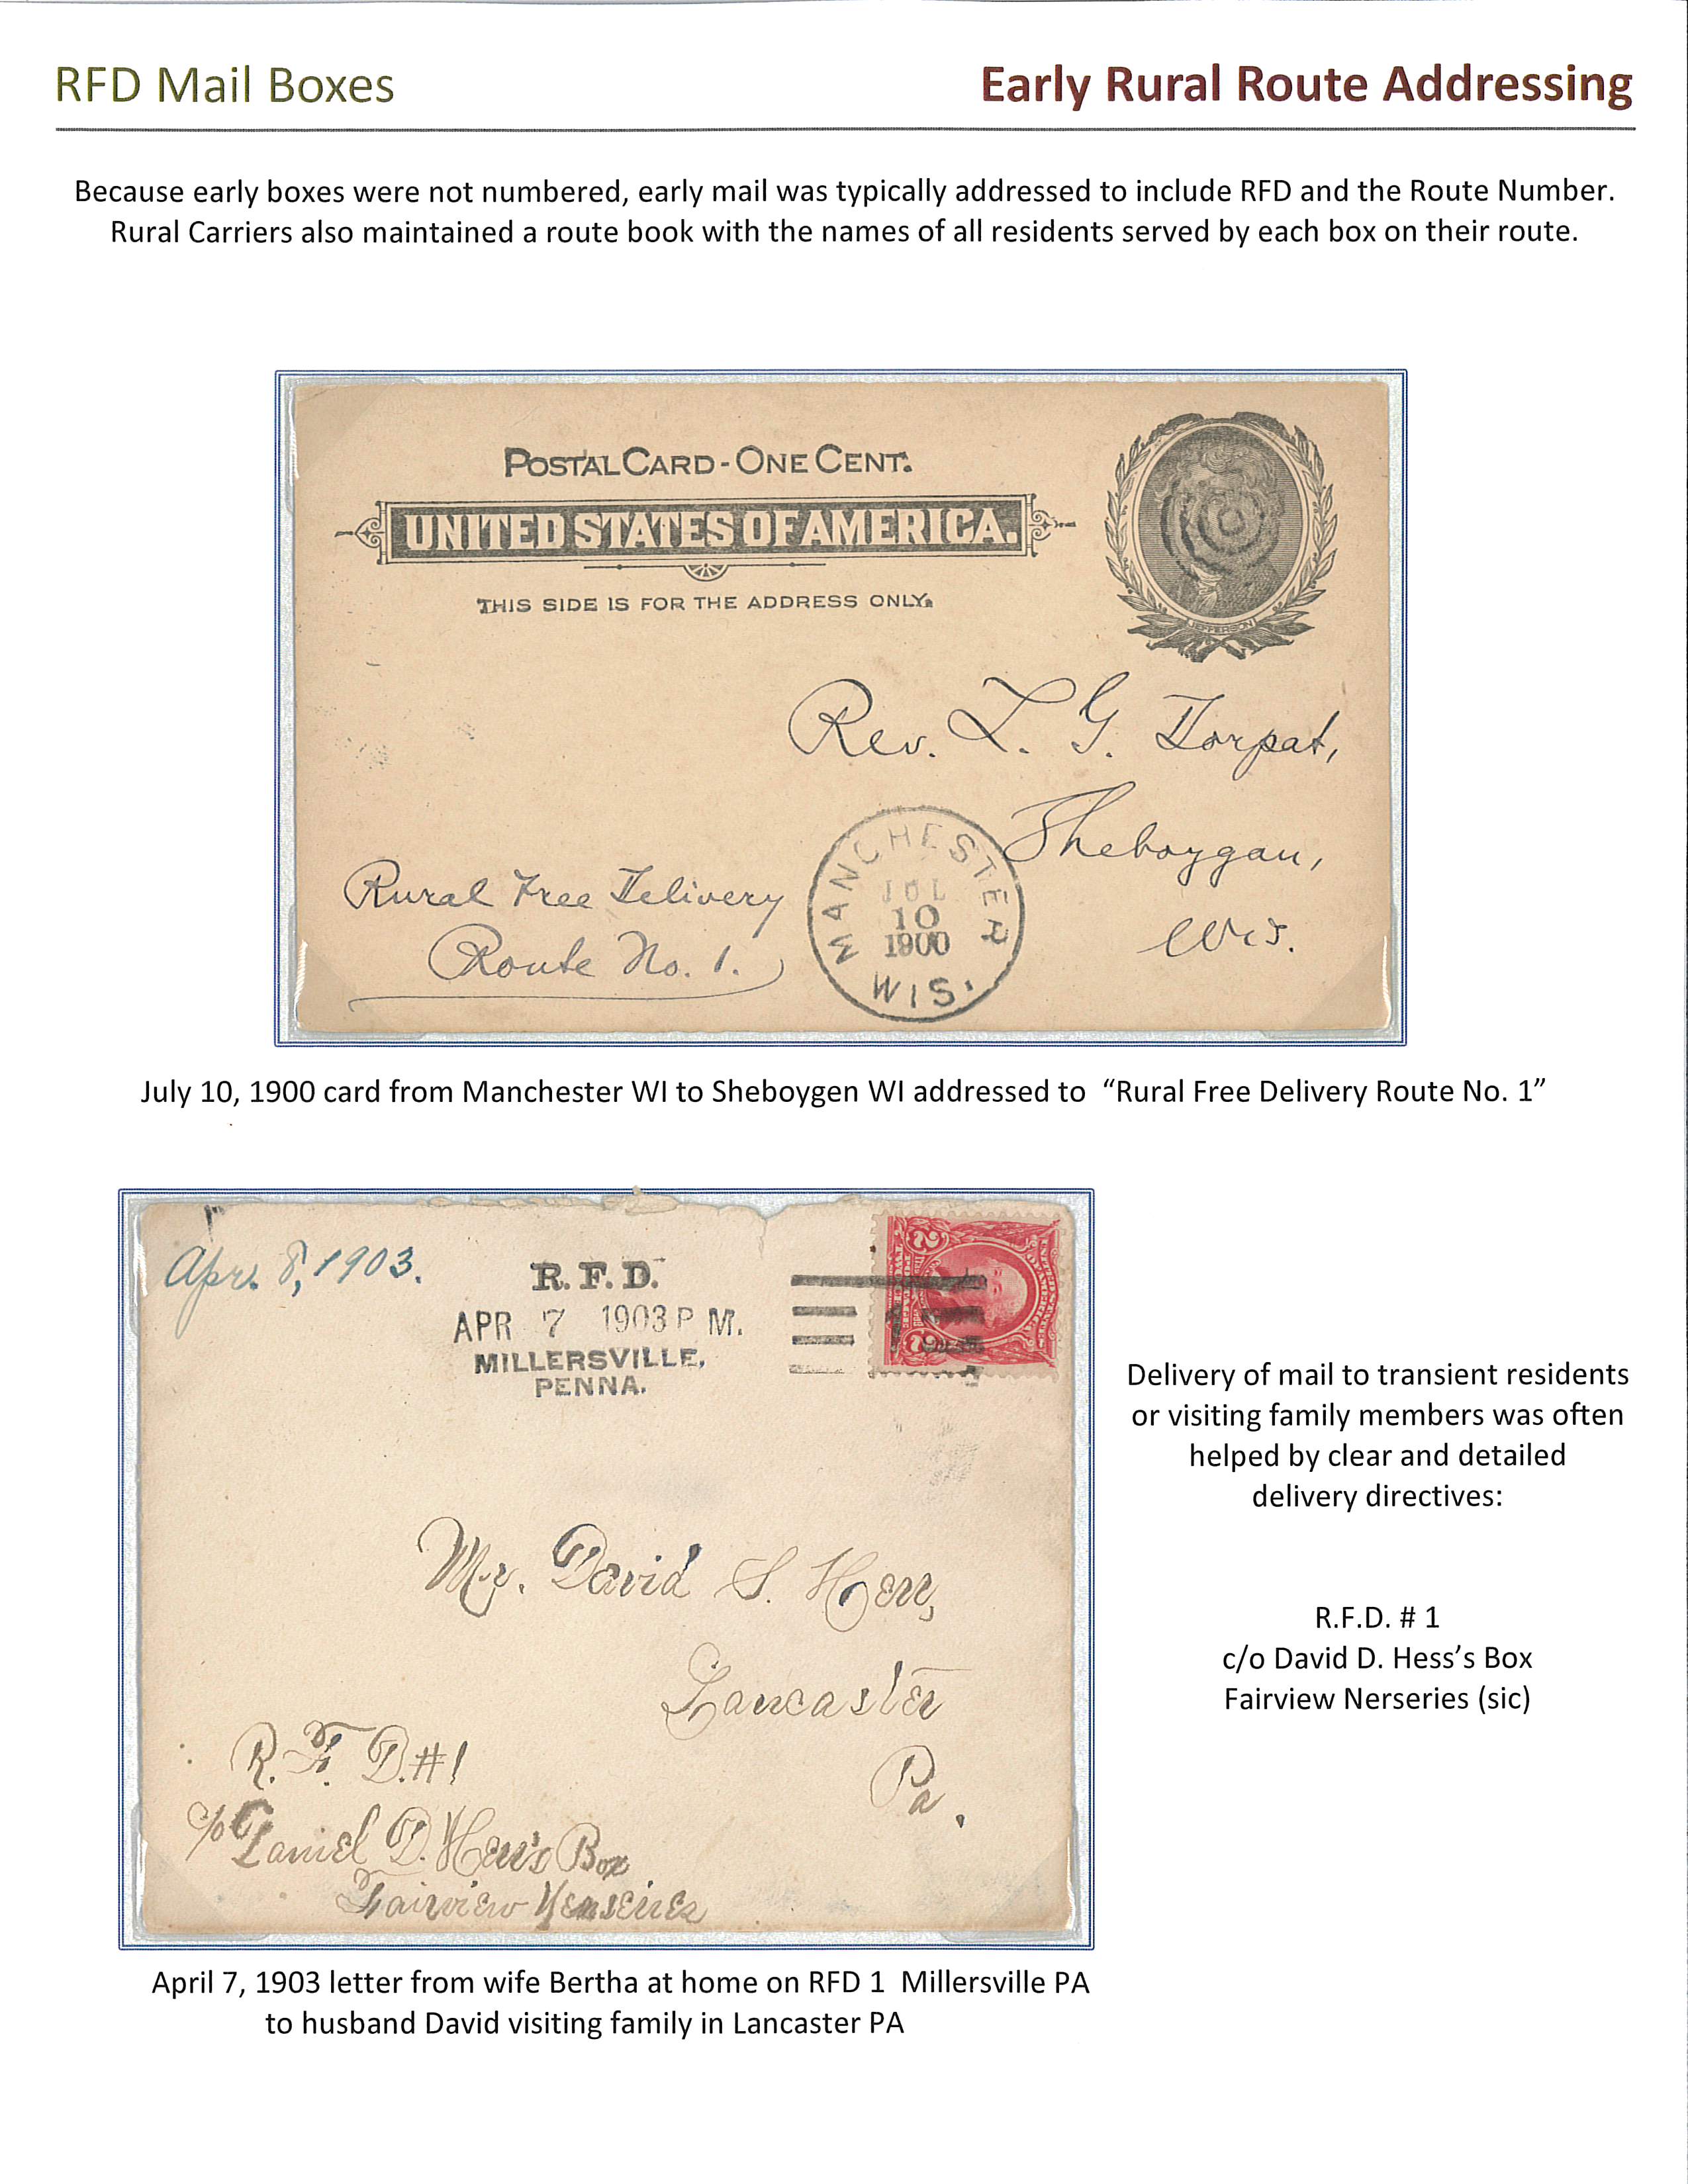 RFD Mail Boxes
Early Rural Route Addressing
Because early boxes were not numbered, early mail was typically addressed to include RFD and the Route Number.
Rural Carriers also maintained a route book with the names of all residents served by each box on their route.
POSTAL CARD - ONE CENT.
UNITED STATES OF AMERICA.
THIS SIDE IS FOR THE ADDRESS ONLY.
JEFFERSON
Rev. L. G. Dorpat,
Sheboygan,
Wis.
Rural Free Delivery
Route No. 1.
MANCHESTER
JUL
10
1900
WIS.
July 10, 1900 card from Manchester WI to Sheboygen WI addressed to “Rural Free Delivery Route No. 1”
Apr. 8, 1903.
R. F. D.
APR 7 1903 P M.
MILLERSVILLE,
PENNA.
2
2
Mr. David S. Herr,
Lancaster
Pa.
R. F. D. #1
c/o Daniel D. Herr's Box
Fairview Nerseries
Delivery of mail to transient residents
or visiting family members was often
helped by clear and detailed
delivery directives:
R.F.D. # 1
c/o David D. Hess’s Box
Fairview Nerseries (sic)
April 7, 1903 letter from wife Bertha at home on RFD 1 Millersville PA
to husband David visiting family in Lancaster PA